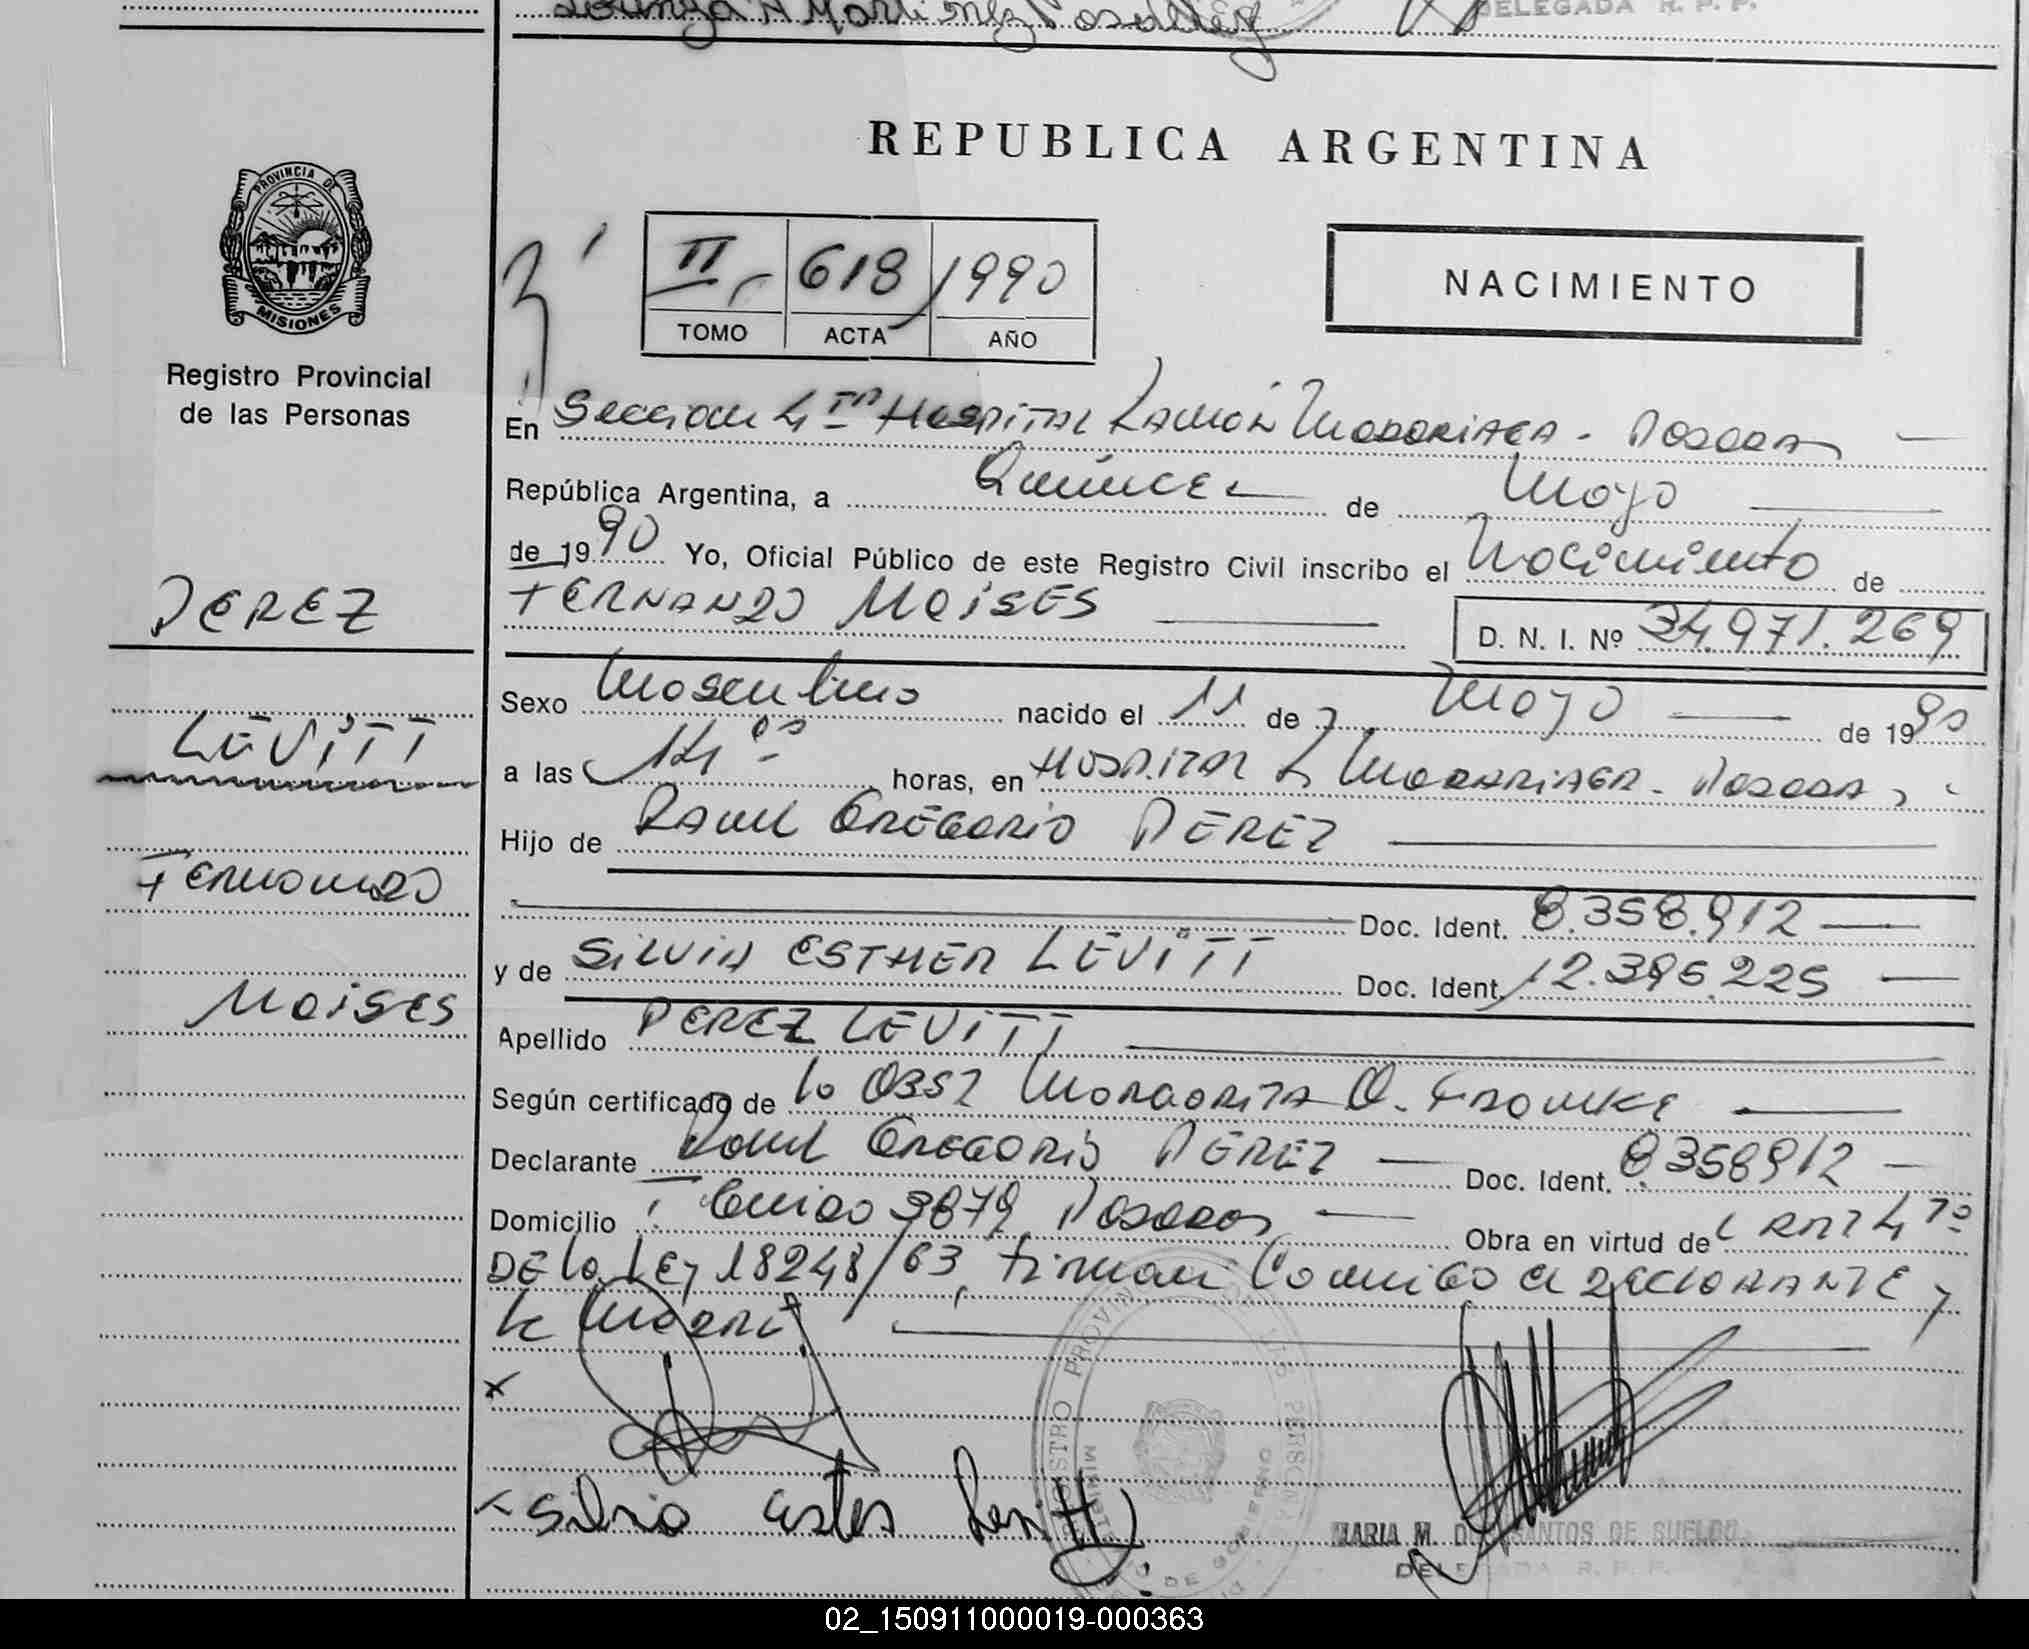 DELEGADA R. P. P.
REPUBLICA ARGENTINA
PROVINCIA DE
MISIONES
Registro Provincial
de las Personas
II 618 1990
TOMO ACTA AÑO
NACIMIENTO
En Seccion 4ta Hospital Ramón Madariaga - Posadas
República Argentina, a Quince de Mayo
de 1990 Yo, Oficial Público de este Registro Civil inscribo el Nacimiento de
FERNANDO MOISES D. N. I. Nº 34.971.269
PEREZ
LEVITT
Fernando
Moises
Sexo Masculino nacido el 11 de Mayo de 1990
a las 14 horas, en Hospital R Madariaga - Posadas
Hijo de Raul GREGORIO PEREZ
Doc. Ident. 8.358.912
y de SILVIA ESTHER LEVITT Doc. Ident. 12.395.225
Apellido PEREZ LEVITT
Según certificado de la Obst Margarita
Declarante Raul GREGORIO PEREZ Doc. Ident. 8.358912
Domicilio Posadas Obra en virtud del Art 4to
DE la Ley 18248/63, Firman Conmigo el DECLARANTE y
la Madre
x
x Silvia Ester Levitt
REGISTRO PROVINCIAL DE LAS PERSONAS
MARIA M. DOS SANTOS DE SUELDO
DELEGADA R. P. P.
02_150911000019-000363